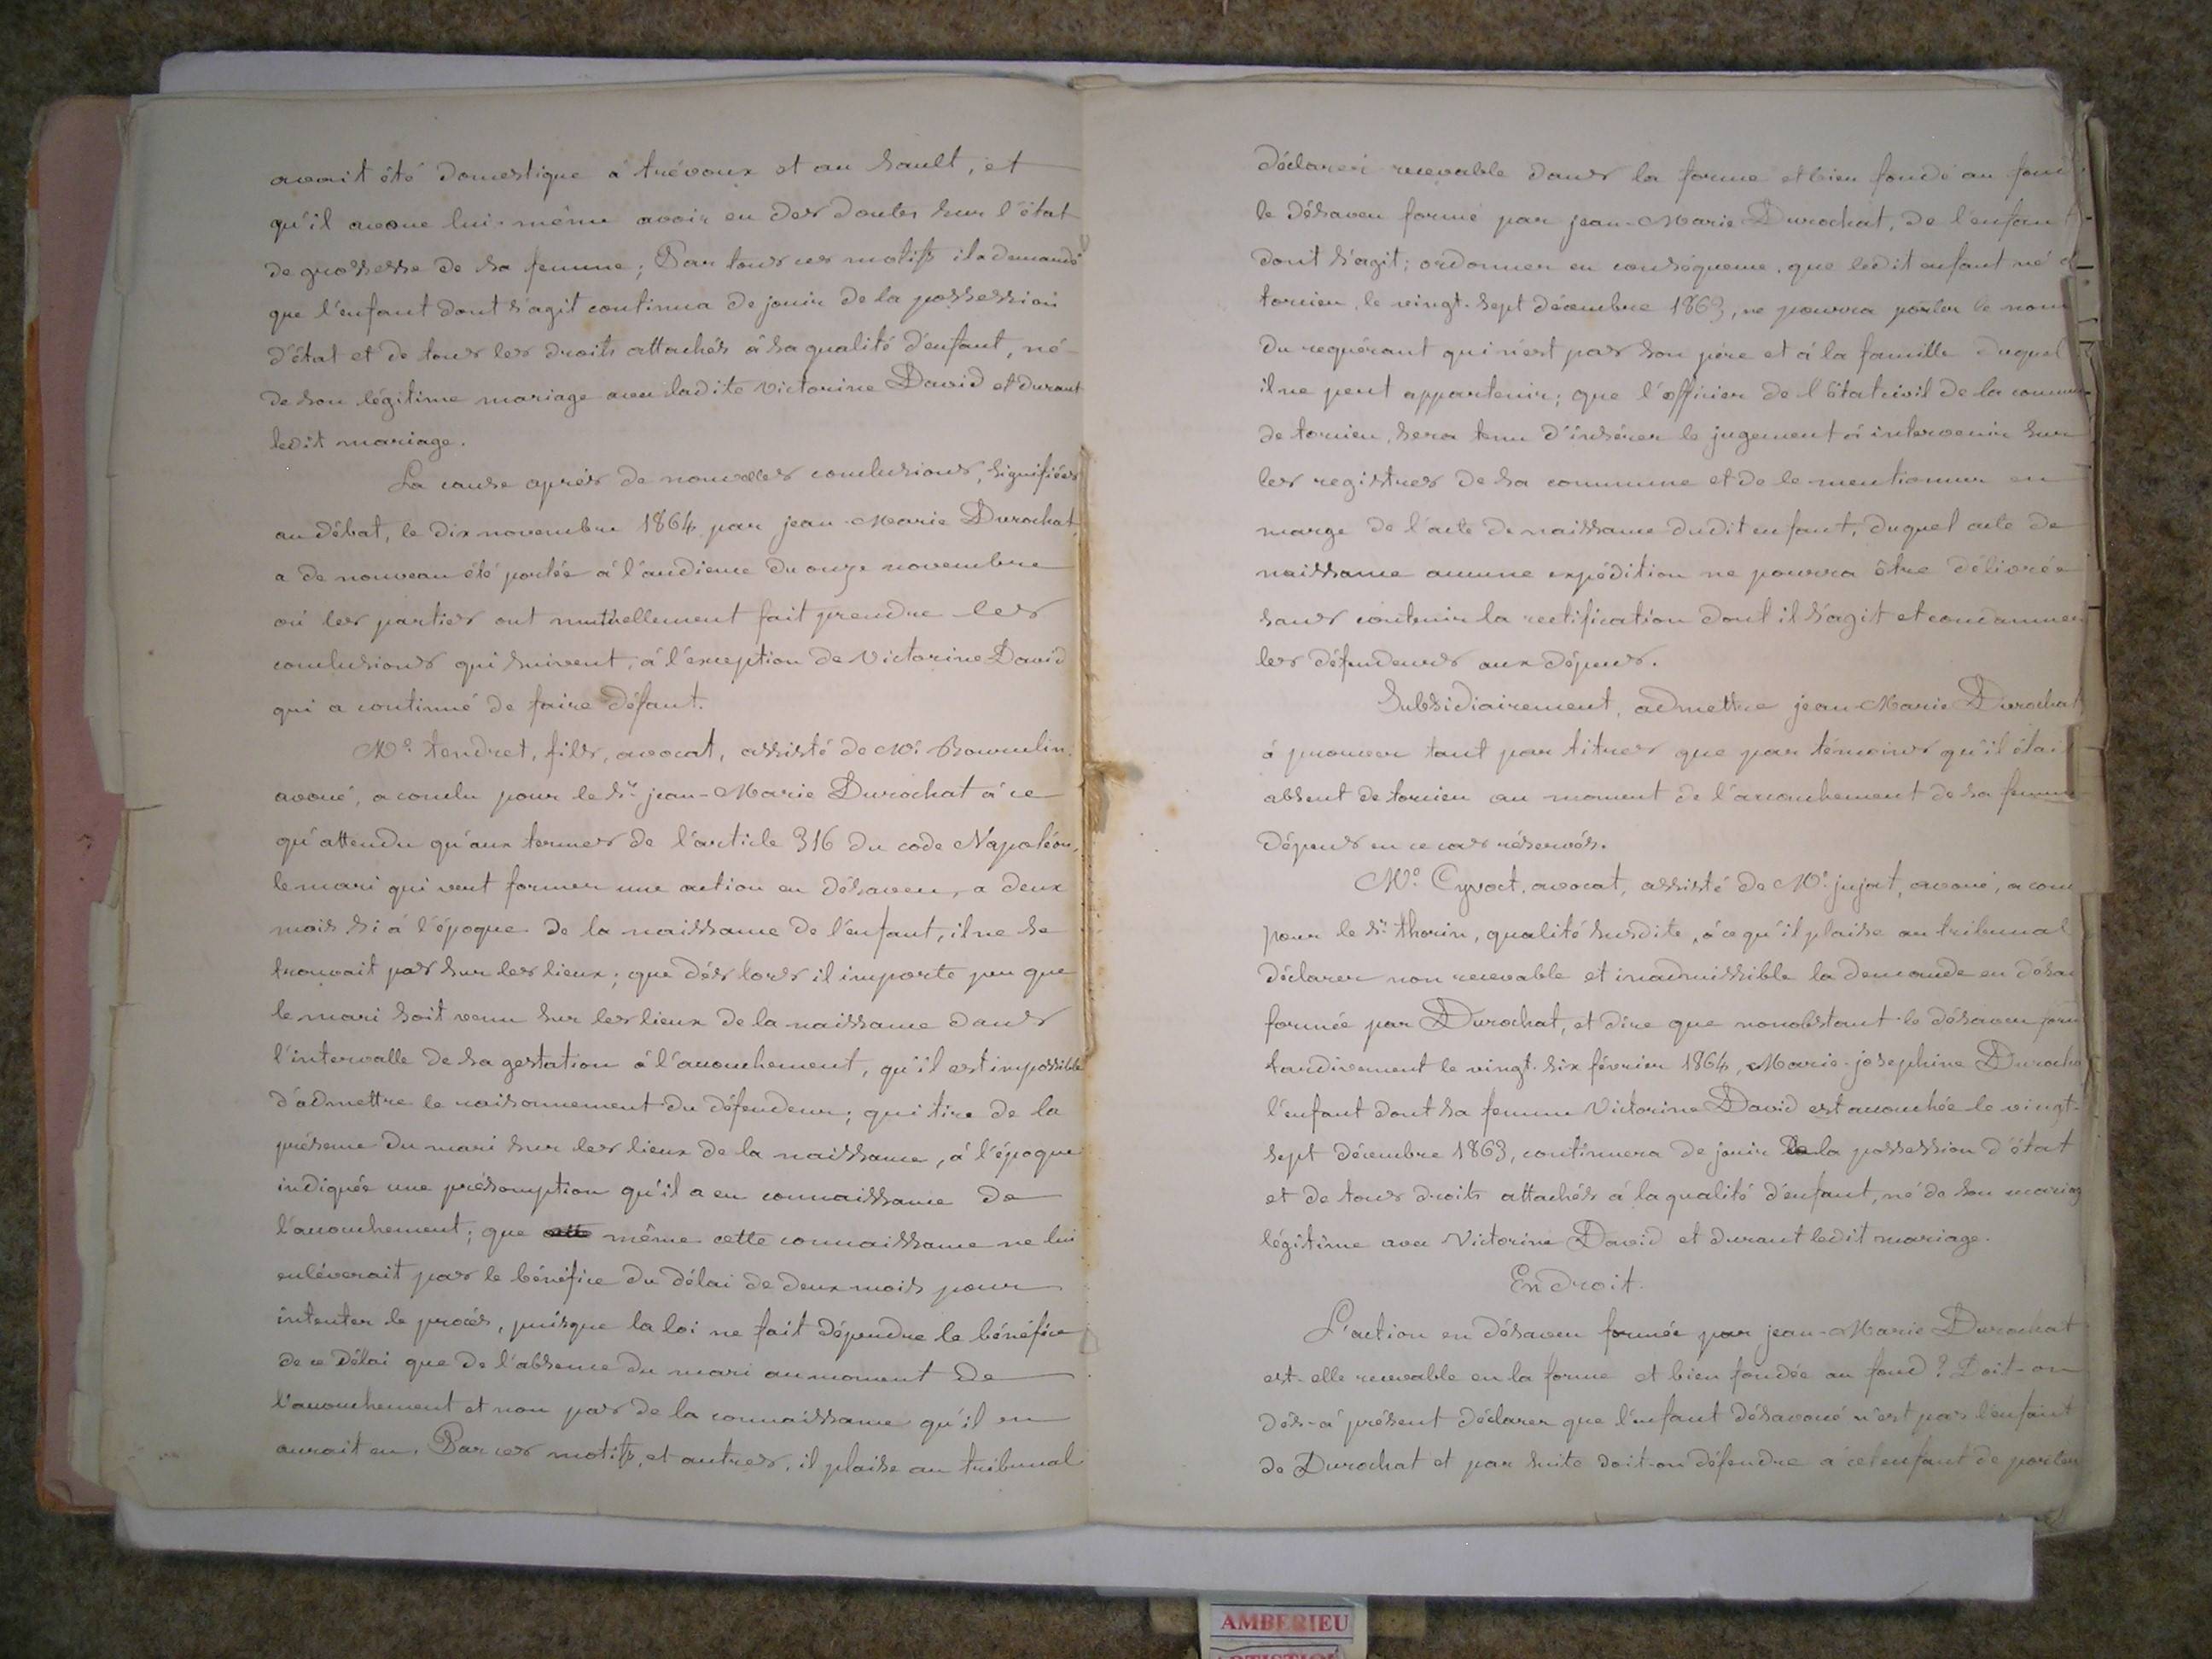 avait été domestique à trévoux et au Sault, et
qu'il avoue lui-même avoir eu des doutes sur l'état
de grossesse de sa femme; Par tous ces motifs il a demandé
que l'enfant dont s'agit continua de jouir de la possession
d'état et de tous les droits attachés à sa qualité d'enfant, né
de son légitime mariage avec ladite Victorine David et durant
ledit mariage.
La cause après de nouvelles conclusions, signifiées
au débat, le dix novembre 1864 par jean-Marie Durochat,
a de nouveau été portée à l'audience du onze novembre
où les parties ont mutuellement fait prendre les
conclusions qui suivent, à l'exception de Victorine David
qui a continué de faire défaut.
Me. tendret, fils, avocat, assisté de Me. Bourculin,
avoué, a conclu pour le Sr. jean-Marie Durochat à ce
qu'attendu qu'aux termes de l'article 316 du code Napoléon,
le mari qui veut former une action en désaveu, a deux
mois si à l'époque de la naissance de l'enfant, il ne se
trouvait pas sur les lieux; que dès lors il importe peu que
le mari soit venu sur les lieux de la naissance dans
l'intervalle de sa gestation à l'accouchement, qu'il est impossible
d'admettre le raisonnement du défendeur; qui tire de la
présence du mari sur les lieux de la naissance, à l'époque
indiquée une présomption qu'il a eu connaissance de
l'accouchement; que même cette connaissance ne lui
enlèverait pas le bénéfice du délai de deux mois pour
intenter le procès, puisque la loi ne fait dépendre le bénéfice
de ce délai que de l'absence du mari au moment de
l'accouchement et non pas de la connaissance qu'il en
aurait eu. Par ces motifs, et autres, il plaise au tribunal
déclarer recevable dans la forme et bien fondé au fond
le désaveu formé par jean-Marie Durochat, de l'enfant
dont s'agit; ordonner en conséquence, que ledit enfant né à
torcieu, le vingt-sept décembre 1863, ne pourra porter le nom
du requérant qui n'est pas son père et à la famille duquel
il ne peut appartenir; que l'officier de l'état civil de la commune
de torcieu, sera tenu d'insérer le jugement à intervenir sur
les registres de sa commune et de le mentionner en
marge de l'acte de naissance dudit enfant, duquel acte de
naissance aucune expédition ne pourra être délivrée
sans contenir la rectification dont il s'agit et condamner
les défendeurs aux dépens.
Subsidiairement, admettre jean-Marie Durochat
à prouver tant par titres que par témoins qu'il était
absent de torcieu au moment de l'accouchement de sa femme
dépens en ce cas réservés.
Me. Cyvoct, avocat, assisté de Me. jujat, avoué, a con
pour le Sr. thorin, qualité susdite, à ce qu'il plaise au tribunal
déclarer non recevable et inadmissible la demande en désa
formée par Durochat, et dire que nonobstant le désaveu form
tardivement le vingt-six février 1864, Marie-josephine Durocha
l'enfant dont sa femme Victorine David est accouchée le vingt-
sept décembre 1863, continuera de jouir de la possession d'état
et de tous droits attachés à la qualité d'enfant, né de son mariag
légitime avec Victorine David et durant ledit mariage.
En droit.
L'action en désaveu formée par jean-Marie Durochat
est-elle recevable en la forme et bien fondée au fond ? Doit-on
dès-à-présent déclarer que l'enfant désavoué n'est pas l'enfant
de Durochat et par suite doit-on défendre à cet enfant de porter
AMBERIEU